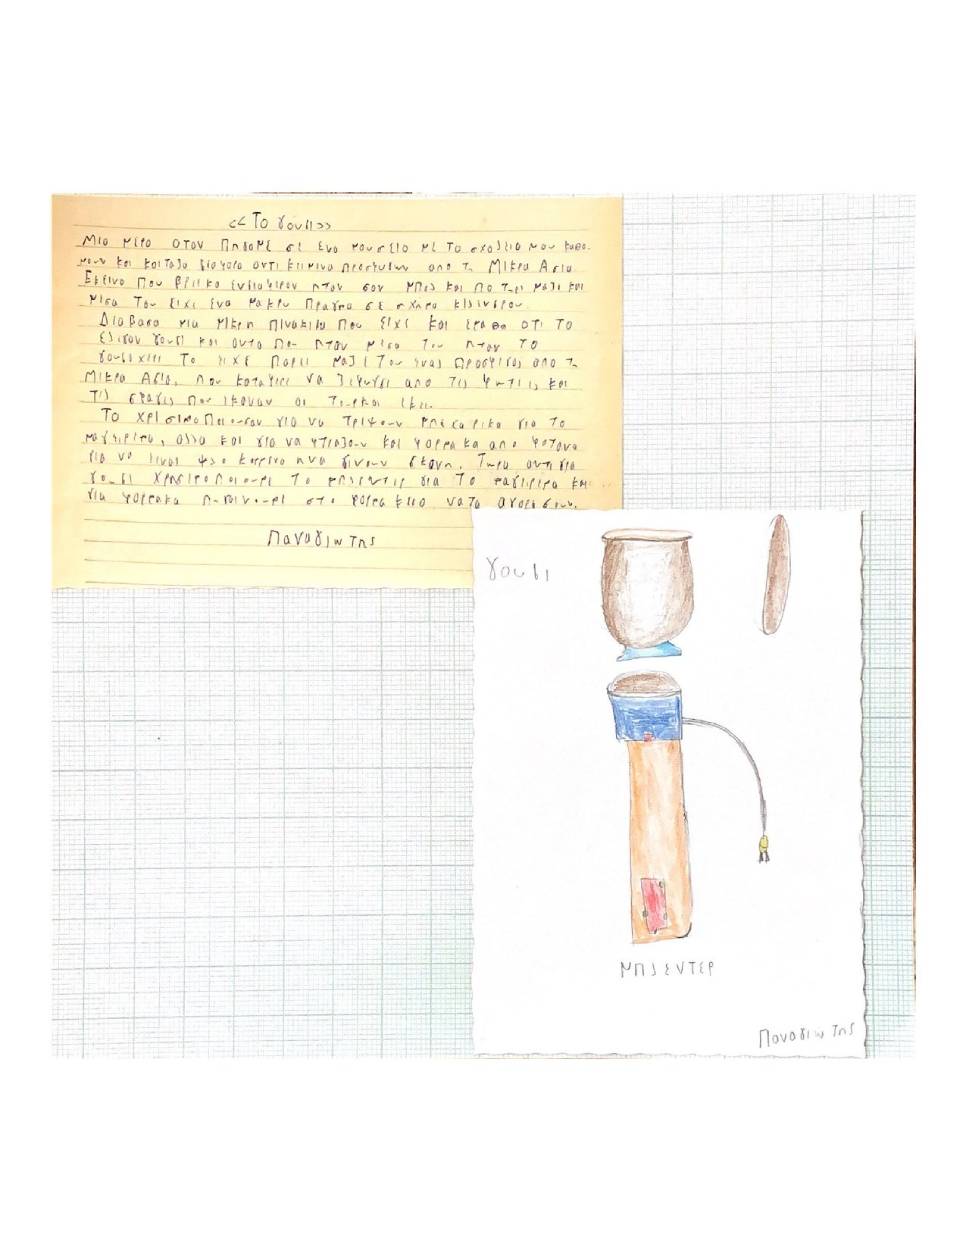 <<Το γουδι>>
Μια μερα οταν πηγαμε σε ενα μουσειο με το σχολειο μου καθο-
μουν και κοιταζα διαφορα αντικειμενα προσφυγων απο τη Μικρα Ασια.
Εκεινο που βρηκα ενδιαφερον ηταν σαν μπολ και ποτηρι μαζι και
μεσα του ειχε ενα μακρυ πραγμα σε σχημα κυλινδρου.
Διαβασα μια μικρη πινακιδα που ειχε και εμαθα οτι το
ελεγαν γουδι και αυτο που ηταν μεσα του ηταν το
γουδοχερι το ειχε παρει μαζι του ενας προσφυγας απο τη
Μικρα Ασια, που καταφερε να ξεφυγει απο τις φωτιες και
τις σφαγες που εκαναν οι Τουρκοι εκει.
Το χρισιμοποιουσαν για να τριψουν μπαχαρικα για το
μαγειρεμα, αλλα και για να φτιαξουν και φαρμακα απο βοτανα
για να ειναι ψιλο κομμενο να γινουν σκονη. Τωρα αντι για
γουδι χρησιμοποιουμε το μπλεντερ για το μαγειρεμα και
για φαρμακα παμε στο φαρμακειο να τα αγορασουμε.
Παναγιωτης
γουδι
ΜΠΛΕΝΤΕΡ
Παναγιωτης